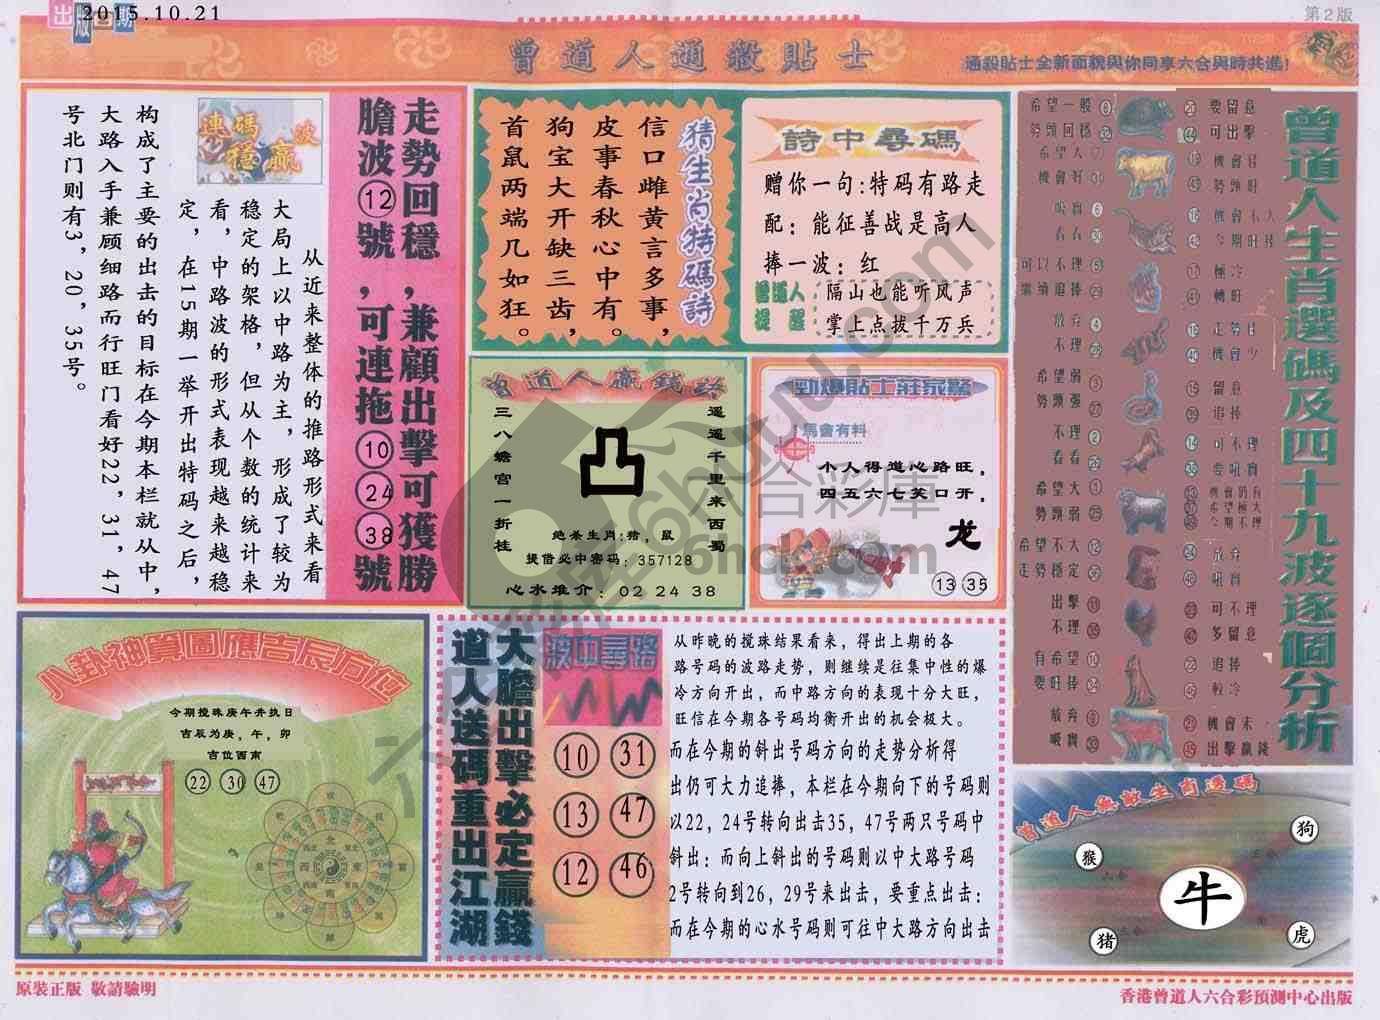 出版日期
2015.10.21
第2版
曾道人通殺貼士
通殺貼士全新面貌與你同享六合與時共進!
走勢回穩,兼顧出擊可獲勝
膽波⑫號,可連拖⑩㉔㊳號
連碼波
穩贏
从近来整体的推路形式来看
大局上以中路为主,形成了较为
稳定的架格,但从个数的统计来
看,中路波的形式表现越来越稳
定,在15期一举开出特码之后,
构成了主要的出击的目标在今期本栏就从中,
大路入手兼顾细路而行旺门看好22,31,47
号北门则有3,20,35号。
猜生肖特碼詩
信口雌黄言多事,
皮事春秋心中有。
狗宝大开缺三齿,
首鼠两端几如狂。
詩中尋碼
赠你一句:特码有路走
配:能征善战是高人
捧一波:红
曾道人提醒
隔山也能听风声
掌上点拔千万兵
曾道人贏錢路
遥遥千里来西蜀
三八蟾宫一折桂
凸
绝杀生肖:猪,鼠
提借必中密码:357128
心水推介:02 24 38
勁爆貼士莊家驚
馬會有料
个人得道心路旺,
四五六七笑口开,
龙
13 35
八卦神算圖應吉辰方位
今期搅珠庚午井执日
吉辰为庚,午,卯
吉位西南
22 30 47
大膽出擊必定贏錢
道人送碼重出江湖
波中尋路
10 31
13 47
12 46
从昨晚的搅珠结果看来,得出上期的各
路号码的波路走势,则继续是往集中性的爆
冷方向开出,而中路方向的表现十分大旺,
旺信在今期各号码均衡开出的机会极大。
而在今期的斜出号码方向的走势分析得
出仍可大力追捧,本栏在今期向下的号码则
以22,24号转向出击35,47号两只号码中
斜出:而向上斜出的号码则以中大路号码
2号转向到26,29号来出击,要重点出击:
而在今期的心水号码则可往中大路方向出击
曾道人生肖選碼及四十九波逐個分析
希望一般
勢頭回穩
要留意
可出擊
希望大
機會好
機會好
勢頭旺
吸寶
看看
機會不大
今期旺捧
可以不理
繼續追捧
極冷
轉旺
放弃
不理
走勢佳
機會少
希望弱
勢頭强
留意
追捧
不理
看看
可不理
要吼實
希望大
勢頭弱
機會仍有
希望極大
今期不理
希望不大
走勢穩定
放弃
吼實
出擊
不理
可不理
多留意
有希望
要旺捧
追捧
較冷
放弃
吸寶
機會末
出擊贏錢
曾道人無敵生肖選碼
狗
猴
牛
猪
虎
原裝正版 敬請驗明
香港曾道人六合彩預測中心出版
六合彩庫
6hdtu.com
6hck.com